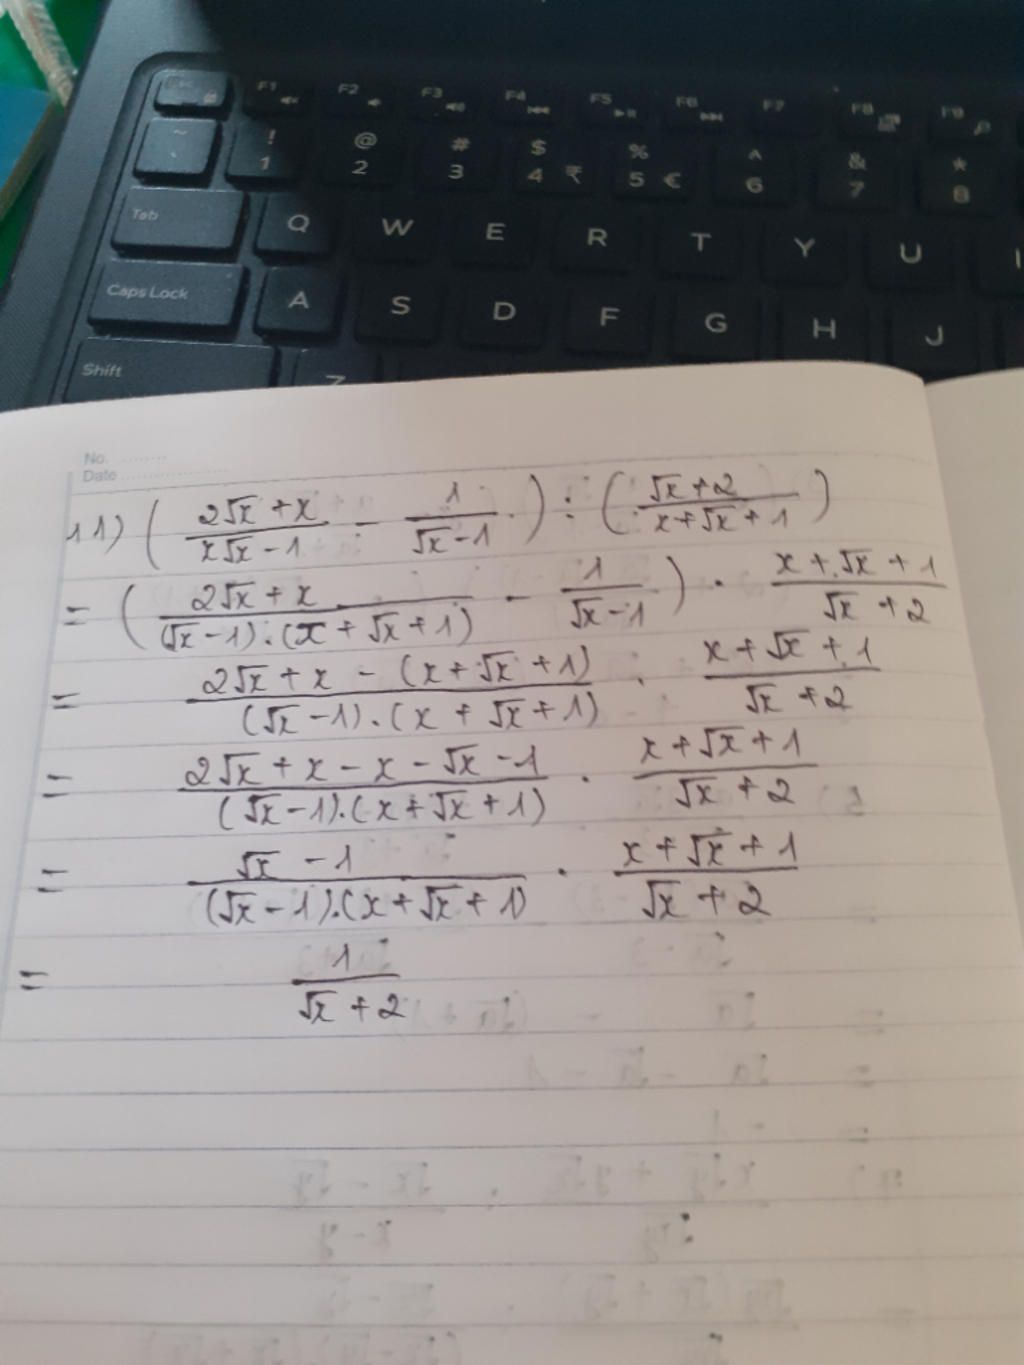 F1 F2 F3 F4 F5 F6 F7 F8 F9
~ ! @ # $ % ^ & *
` 1 2 3 4 ₹ 5 € 6 7 8
Tab Q W E R T Y U I
Caps Lock A S D F G H J
Shift Z
No.
Date
11) (2√x + x / x√x - 1 - 1 / √x - 1) : (√x + 2 / x + √x + 1)
= (2√x + x / (√x - 1).(x + √x + 1) - 1 / √x - 1) . x + √x + 1 / √x + 2
= 2√x + x - (x + √x + 1) / (√x - 1).(x + √x + 1) . x + √x + 1 / √x + 2
= 2√x + x - x - √x - 1 / (√x - 1).(x + √x + 1) . x + √x + 1 / √x + 2
= √x - 1 / (√x - 1).(x + √x + 1) . x + √x + 1 / √x + 2
= 1 / √x + 2